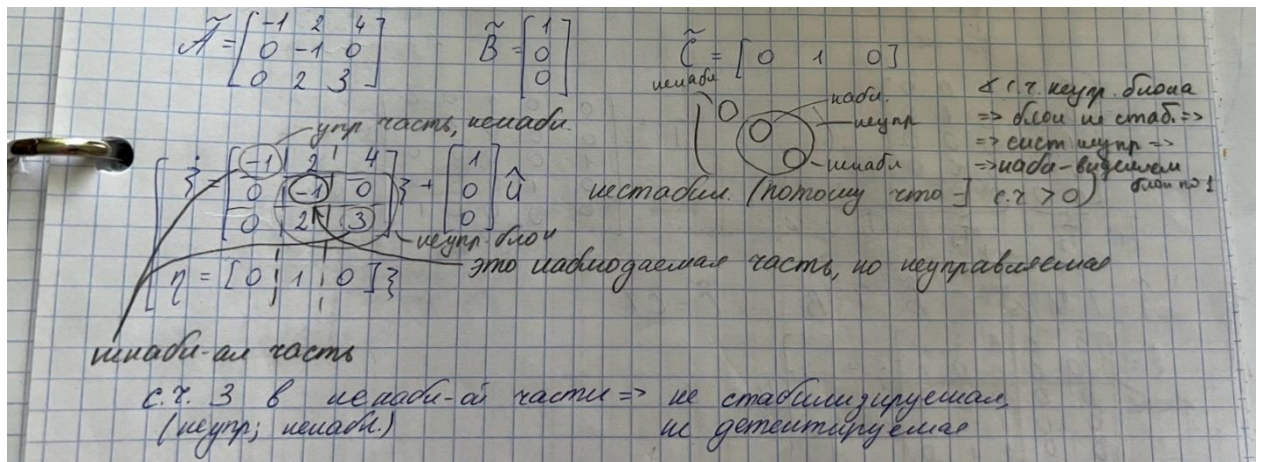 Ã = [-1 2 4; 0 -1 0; 0 2 3] B̃ = [1; 0; 0] C̃ = [0 1 0]
ненабл
набл.
неупр
ненабл
∢ с.ч. неупр. блока
=> блок не стаб. =>
=> сист неупр =>
=> набл-
блок по 1
упр часть, ненабл.
ξ̇ = [-1 2 4; 0 -1 0; 0 2 3] ξ + [1; 0; 0] û нестабил. (потому что ∃ с.ч > 0)
неупр. блок
это наблюдаемая часть, но неуправляемая
η = [0 1 0] ξ
ненабл-ая часть
с.ч. 3 в ненабл-ой части => не стабилизируемая,
(неупр; ненабл.) не детектируемая